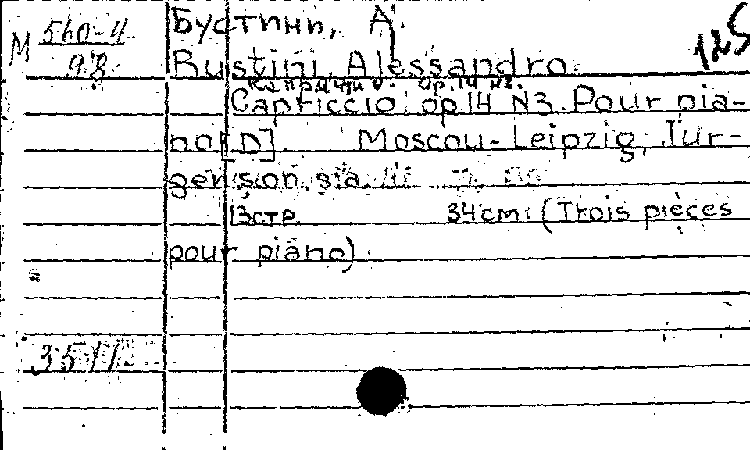 М 560-4
98
Бустини, А.
125
Bustini, Alessandro.
Каприччио. Op. 14 №3.
Capriccio op 14 N3. Pour pia-
no [D]. Moscou-Leipzig, Jur-
genson, s.a.
13 стр. 34 cm. (Trois pièces
pour piano).